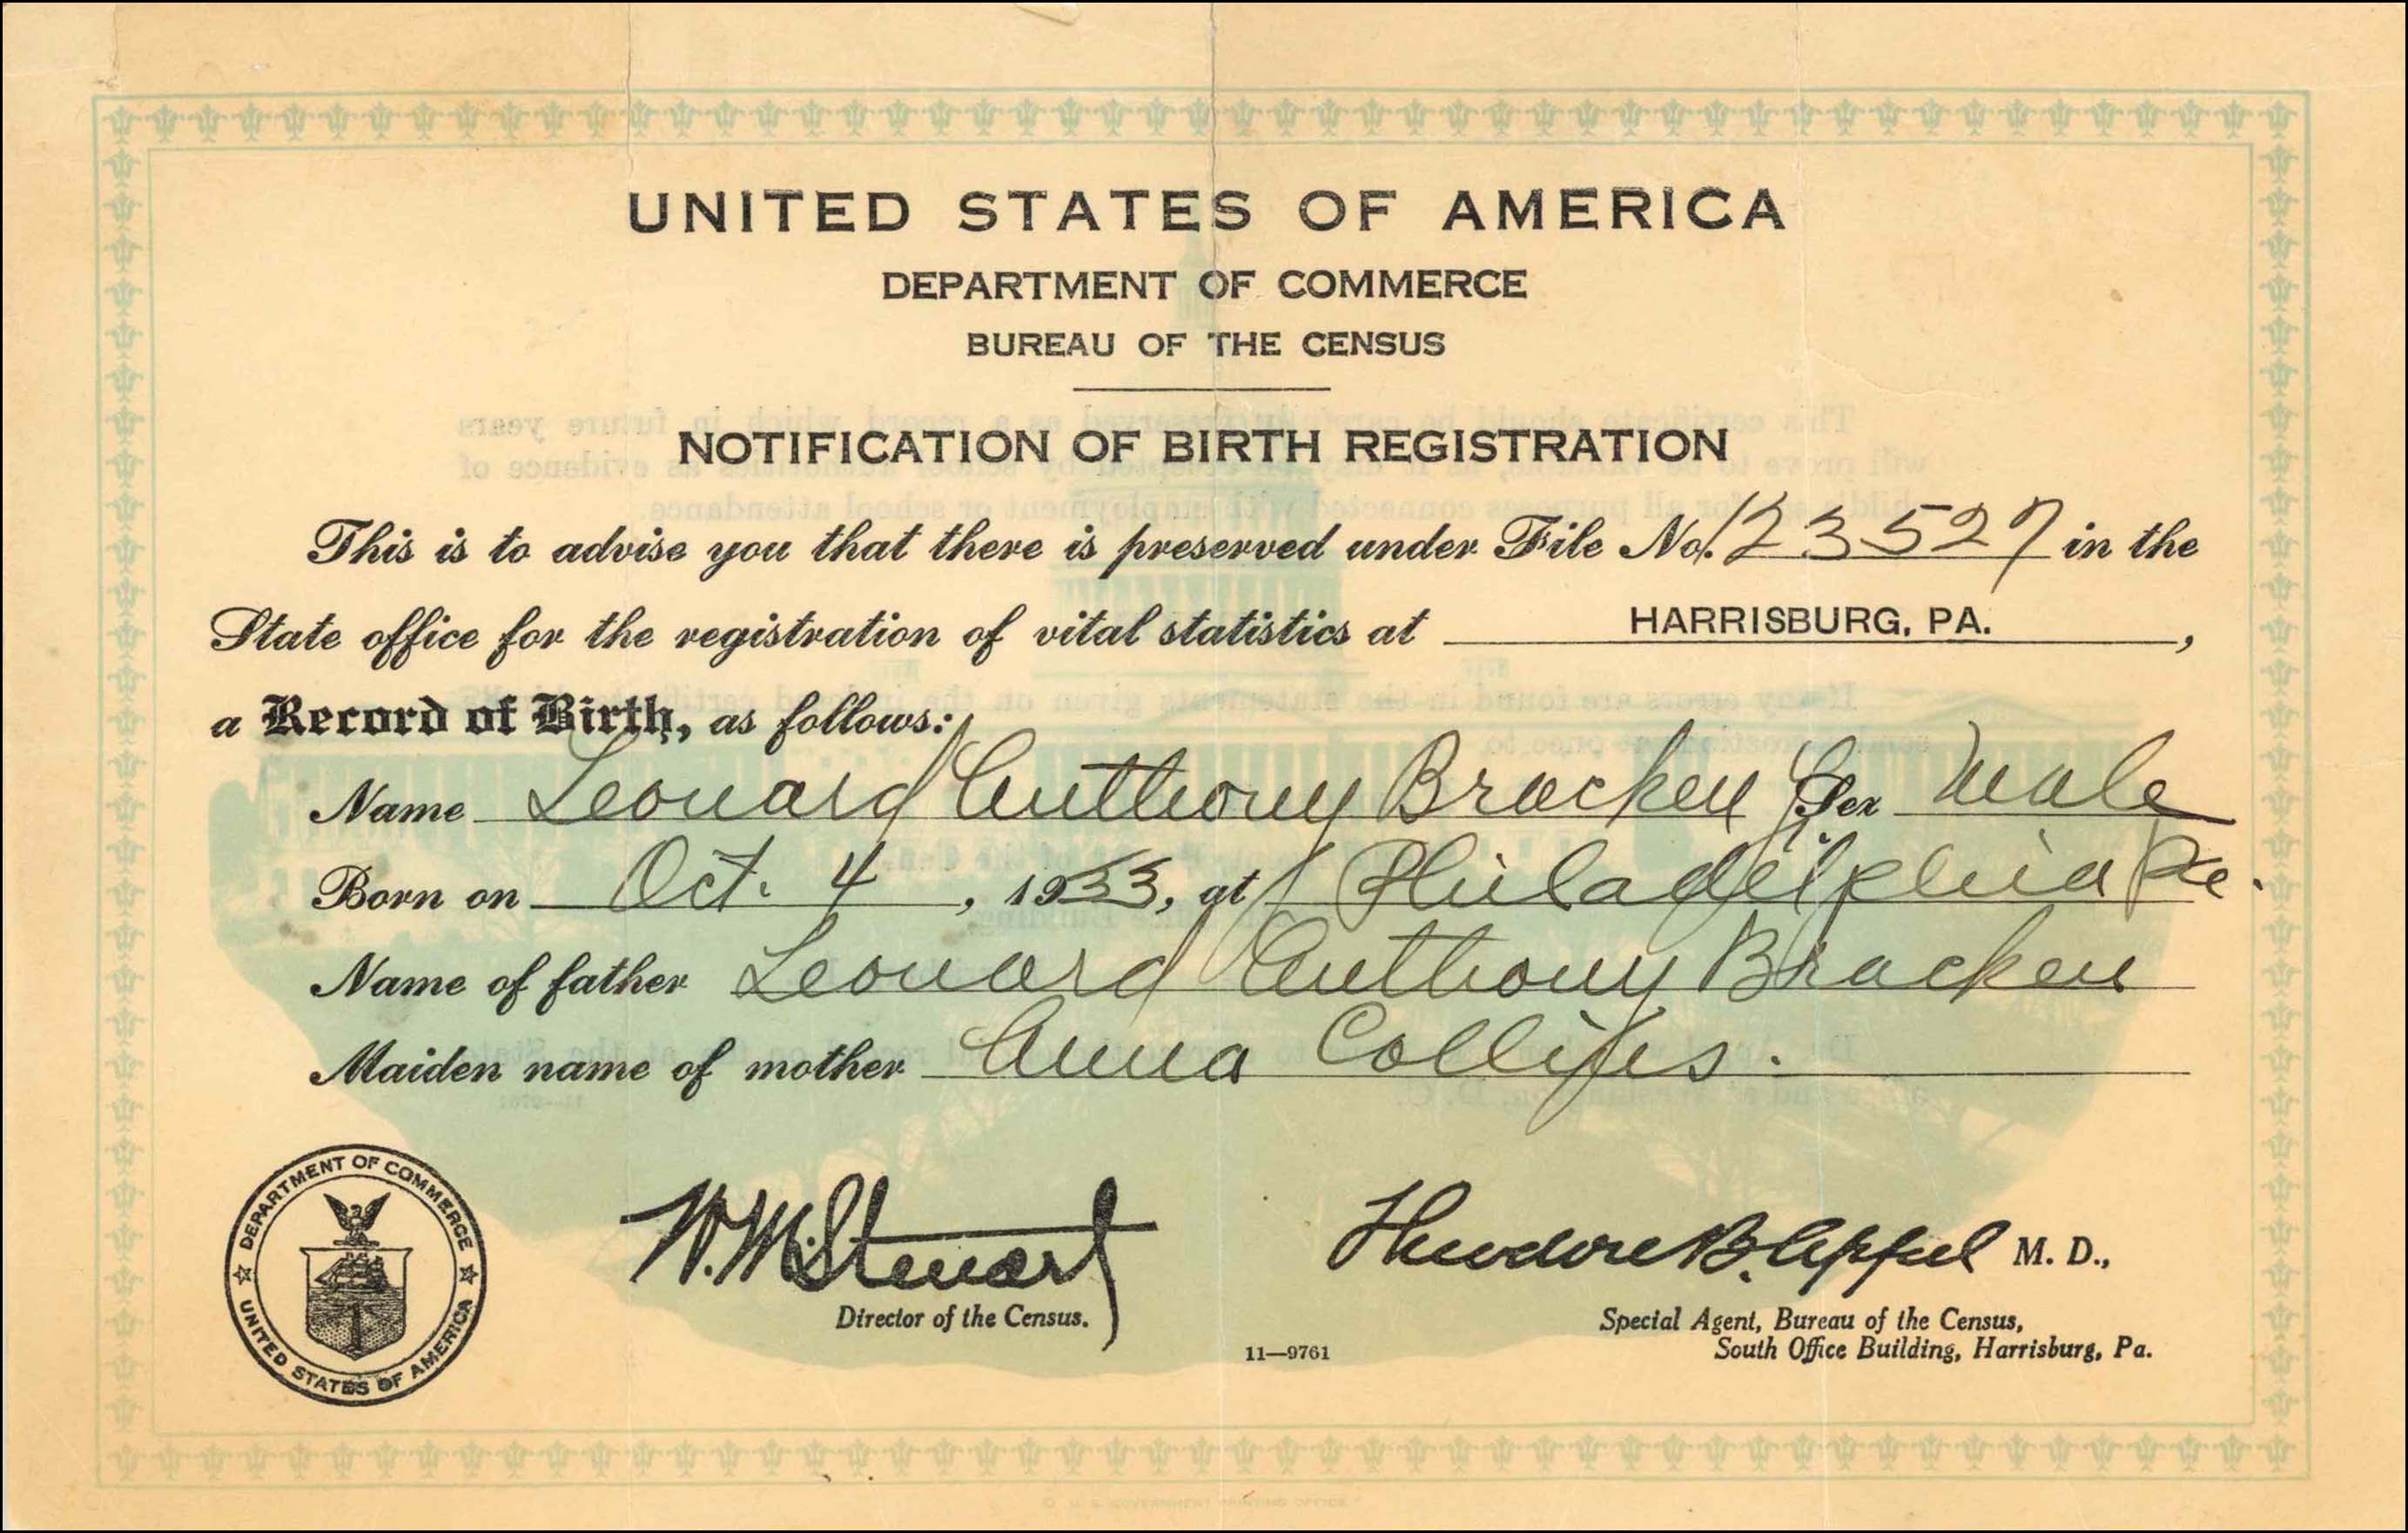 UNITED STATES OF AMERICA
DEPARTMENT OF COMMERCE
BUREAU OF THE CENSUS
NOTIFICATION OF BIRTH REGISTRATION
This is to advise you that there is preserved under File No. 123527 in the
State office for the registration of vital statistics at HARRISBURG, PA.,
a Record of Birth, as follows:
Name Leonard Anthony Bracken Sex Male
Born on Oct. 4, 1933, at Philadelphia Pa.
Name of father Leonard Anthony Bracken
Maiden name of mother Anna Collins.
DEPARTMENT OF COMMERCE
UNITED STATES OF AMERICA
W. M. Steuart
Director of the Census.
Theodore B. Appel M. D.,
Special Agent, Bureau of the Census,
South Office Building, Harrisburg, Pa.
11—9761
U. S. GOVERNMENT PRINTING OFFICE